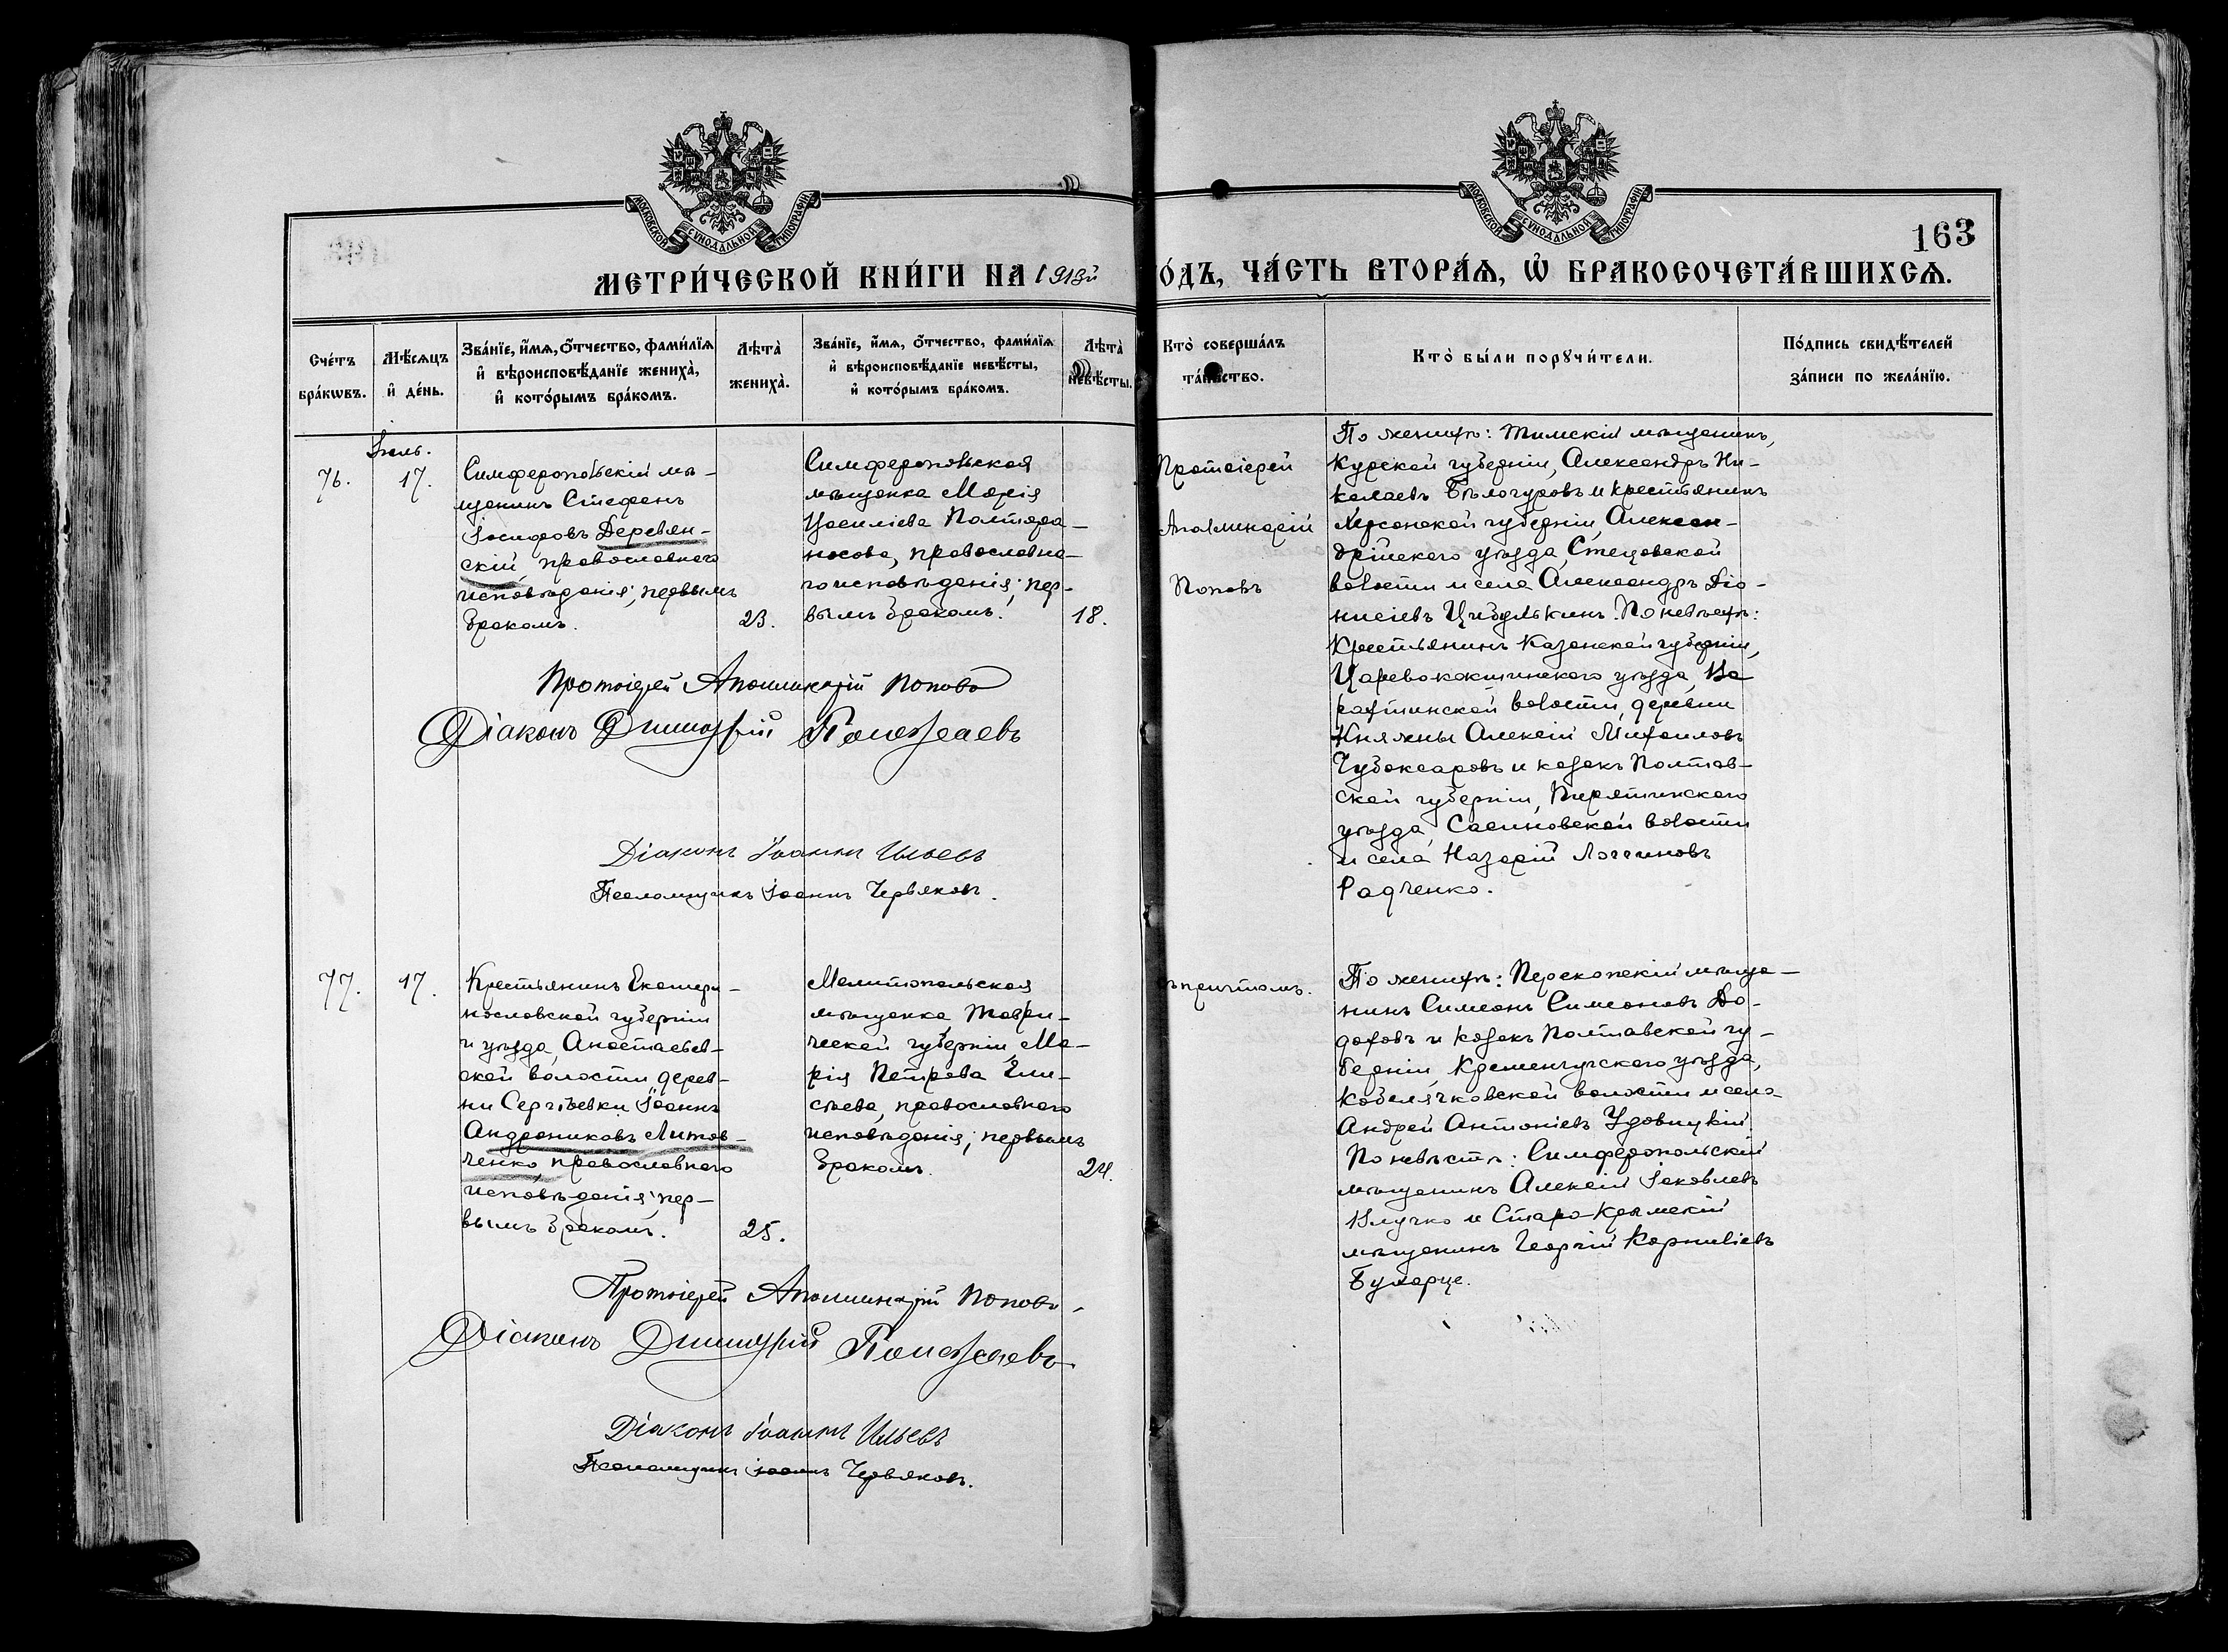 163
МЕТРИ́ЧЕСКОЙ КНИ́ГИ НА 1913й
О́ДЪ, ЧА́СТЬ ВТОРА́Ѧ, Ѽ БРАКОСОЧЕТА́ВШИХСѦ.
МОСКОВСКОЙ СѴНОДАЛЬНОЙ ТИПОГРАФІИ
МОСКОВСКОЙ СѴНОДАЛЬНОЙ ТИПОГРАФІИ
Сче́тъ
бра́кѡвъ.
Мѣ́сѧцъ
и҆ де́нь.
Зва́нїе, и҆́мѧ, о҆́тчество, фами́лїѧ
и҆ вѣроисповѣ́данїе жениха̀,
и҆ кото́рымъ бра́комъ.
Лѣта̀
жениха̀.
Зва́нїе, и҆́мѧ, о҆́тчество, фами́лїѧ
и҆ вѣроисповѣ́данїе невѣ́сты,
и҆ кото́рымъ бра́комъ.
Лѣта̀
невѣ́сты.
Кто̀ соверша́лъ
та́инство.
Кто̀ бы́ли порꙋчи́тели.
По́дпись свидѣ́телей
за́писи по жела́нїю.
Іюль.
76.
17.
Симферопольскій мѣ-
щанинъ Стефанъ
Іосифовъ Деревян-
скій, православнаго
исповѣданія; первымъ
бракомъ.
23.
Симферопольская
мѣщанка Марія
Василіева Полтора-
носова, православна-
го исповѣданія; пер-
вымъ бракомъ.
18.
Протоіерей
Аполлинарій
Поповъ
По женихѣ: Тимскій мѣщанинъ,
Курской губерніи, Александръ Ни-
колаевъ Бѣлогуровъ и крестьянинъ
Херсонской губерніи, Алексан-
дрійскаго уѣзда, Стецовской
волости и села Александръ Діо-
нисіевъ Цибулькинъ. По невѣстѣ:
Крестьянинъ Казанской губерніи,
Царевококшайскаго уѣзда, Ва
рангинской волости, деревни
Княжны Алексій Михаиловъ
Чубоксаровъ и казакъ Полтав-
ской губерніи, Пирятинскаго
уѣзда, Сасиновской волости
и села Назарій Логгиновъ
Радченко.
Протоіерей Аполлинарій Поповъ
Діаконъ Димитрій
Діаконъ Іоаннъ Ильевъ
Псаломщикъ Іоаннъ Червяковъ.
77.
17.
Крестьянинъ Екатери-
нославской губерніи
и уѣзда, Анастасіев-
ской волости, дерев-
ни Сергѣевки Іоаннъ
Андрониковъ Литов-
ченко, православнаго
исповѣданія; пер-
вымъ бракомъ.
25.
Мелитопольская
мѣщанка, Таври-
ческой губерніи, Ма-
рія Петрова Ели-
сѣева, православнаго
исповѣданія; первымъ
бракомъ.
24.
съ причтомъ.
По женихѣ: Перекопскій мѣща-
нинъ Симеонъ Симеоновъ До-
доховъ и казакъ Полтавской гу-
берніи, Кременчугскаго уѣзда,
Кобелячковской волости и села
Андрей Антоніевъ Удовицкій.
По невѣстѣ: Симферопольскій
мѣщанинъ Алексій Іаковлевъ
Клучко и Старо-Крымскій
мѣщанинъ Георгій Корниліевъ
Буларце.
Протоіерей Аполлинарій Поповъ
Діаконъ Димитрій
Діаконъ Іоаннъ Ильевъ
Псаломщикъ Іоаннъ Червяковъ.